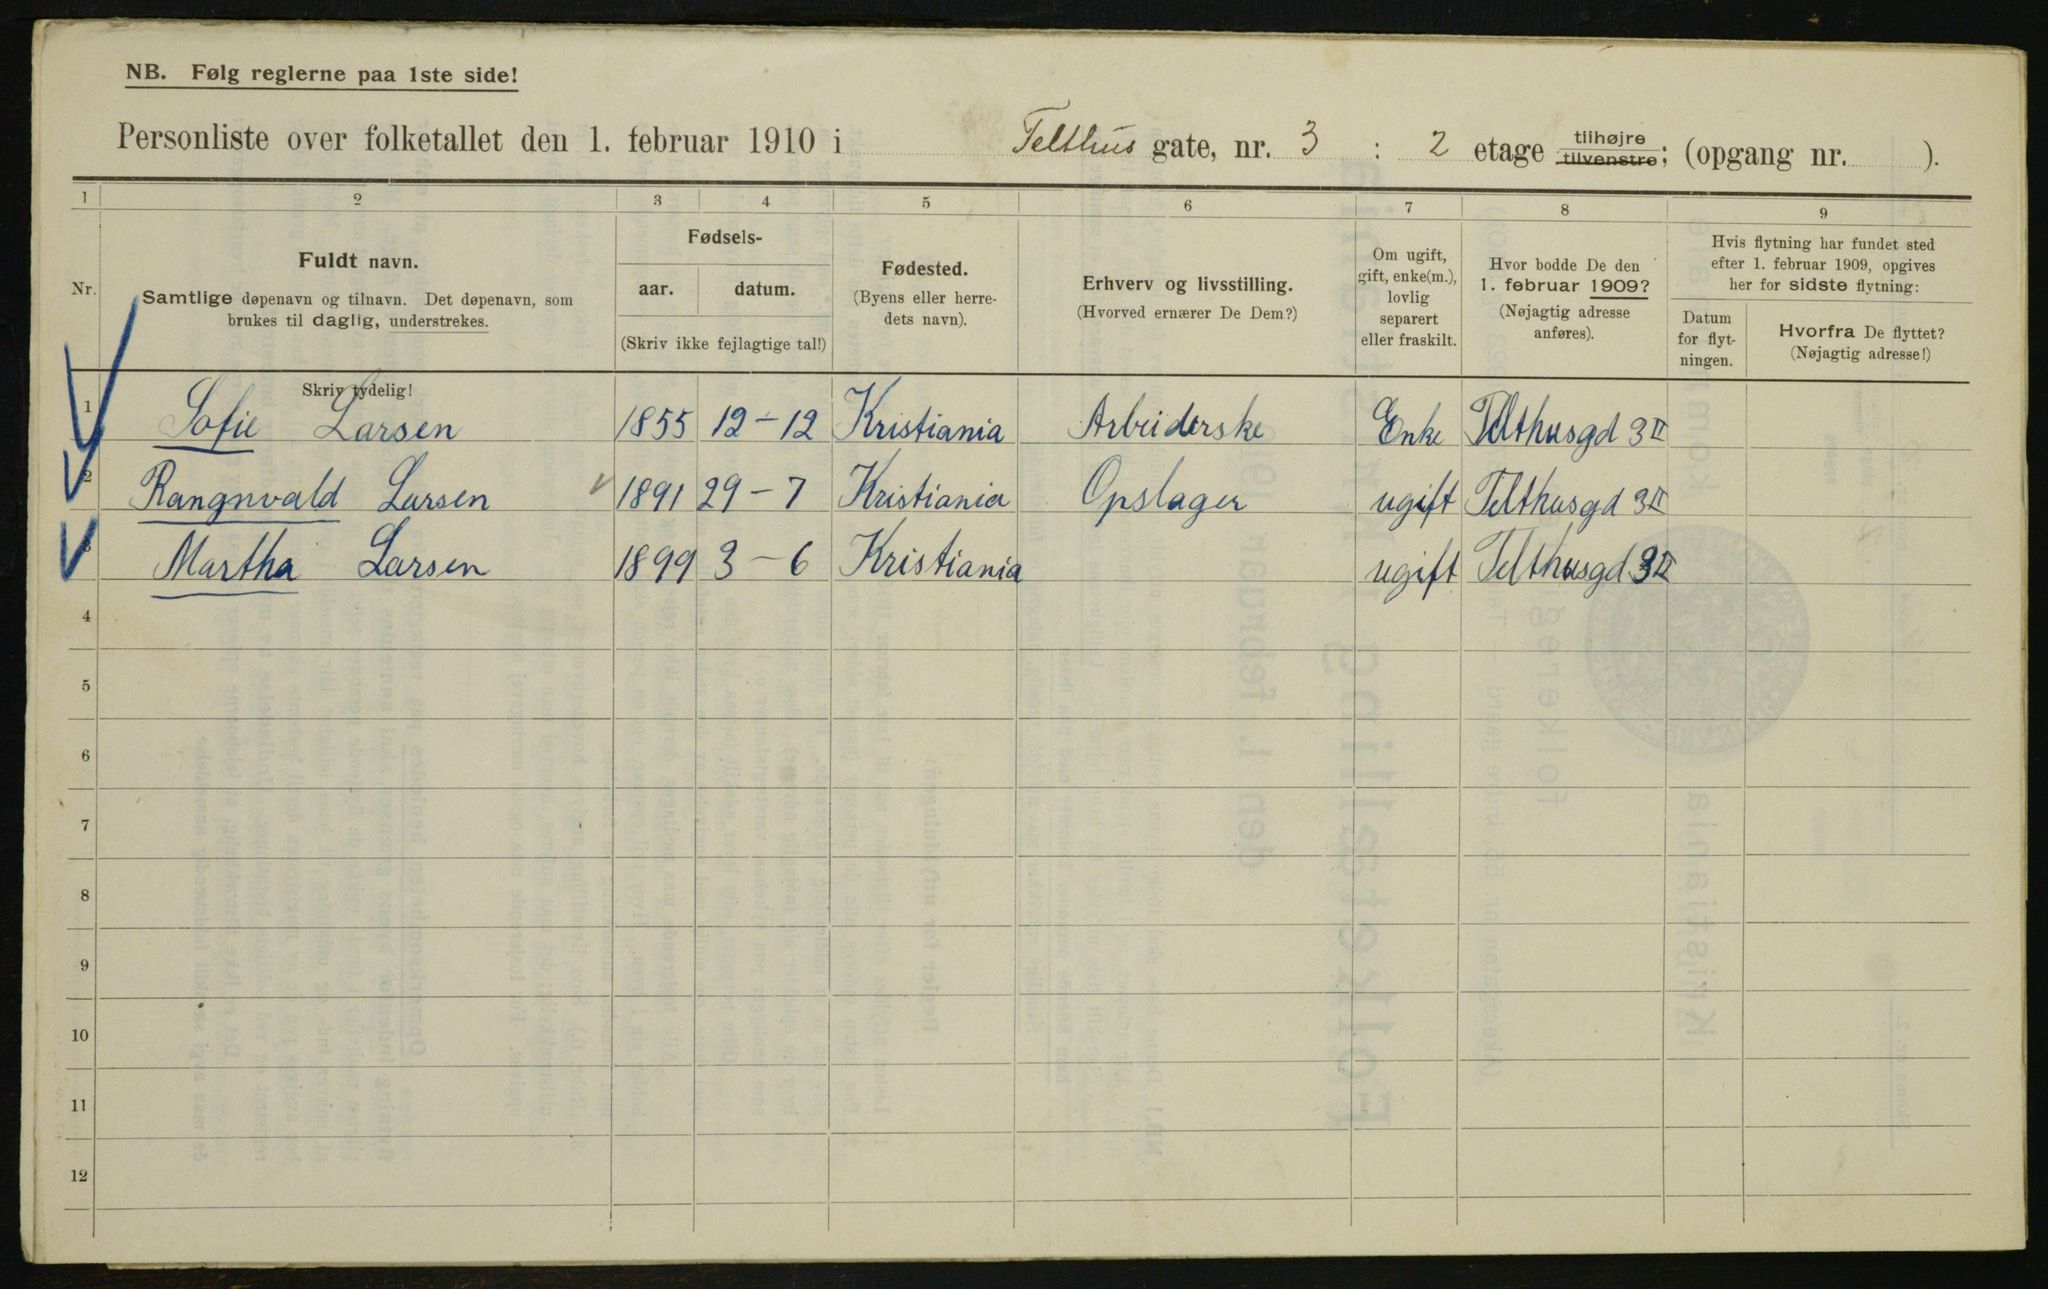 NB. Følg reglerne paa 1ste side!
Personliste over folketallet den 1. februar 1910 i Telthus gate, nr. 3 : 2 etage tilhøjre tilvenstre; (opgang nr. ).
1 2 3 4 5 6 7 8 9
Nr.
Fuldt navn.
Samtlige døpenavn og tilnavn. Det døpenavn, som
brukes til daglig, understrekes.
Skriv tydelig!
Fødsels-
aar. datum.
(Skriv ikke fejlagtige tal!)
Fødested.
(Byens eller herre-
dets navn).
Erhverv og livsstilling.
(Hvorved ernærer De Dem?)
Om ugift,
gift, enke(m.),
lovlig
separert
eller fraskilt.
Hvor bodde De den
1. februar 1909?
(Nøjagtig adresse
anføres).
Hvis flytning har fundet sted
efter 1. februar 1909, opgives
her for sidste flytning:
Datum
for flyt-
ningen.
Hvorfra De flyttet?
(Nøjagtig adresse!)
1 Sofie Larsen 1855 12-12 Kristiania Arbeiderske Enke Telthusgd 3 II
2 Rangnvald Larsen 1891 29-7 Kristiania Opslager ugift Telthusgd 3 II
3 Martha Larsen 1899 3-6 Kristiania ugift Telthusgd 3 II
4
5
6
7
8
9
10
11
12